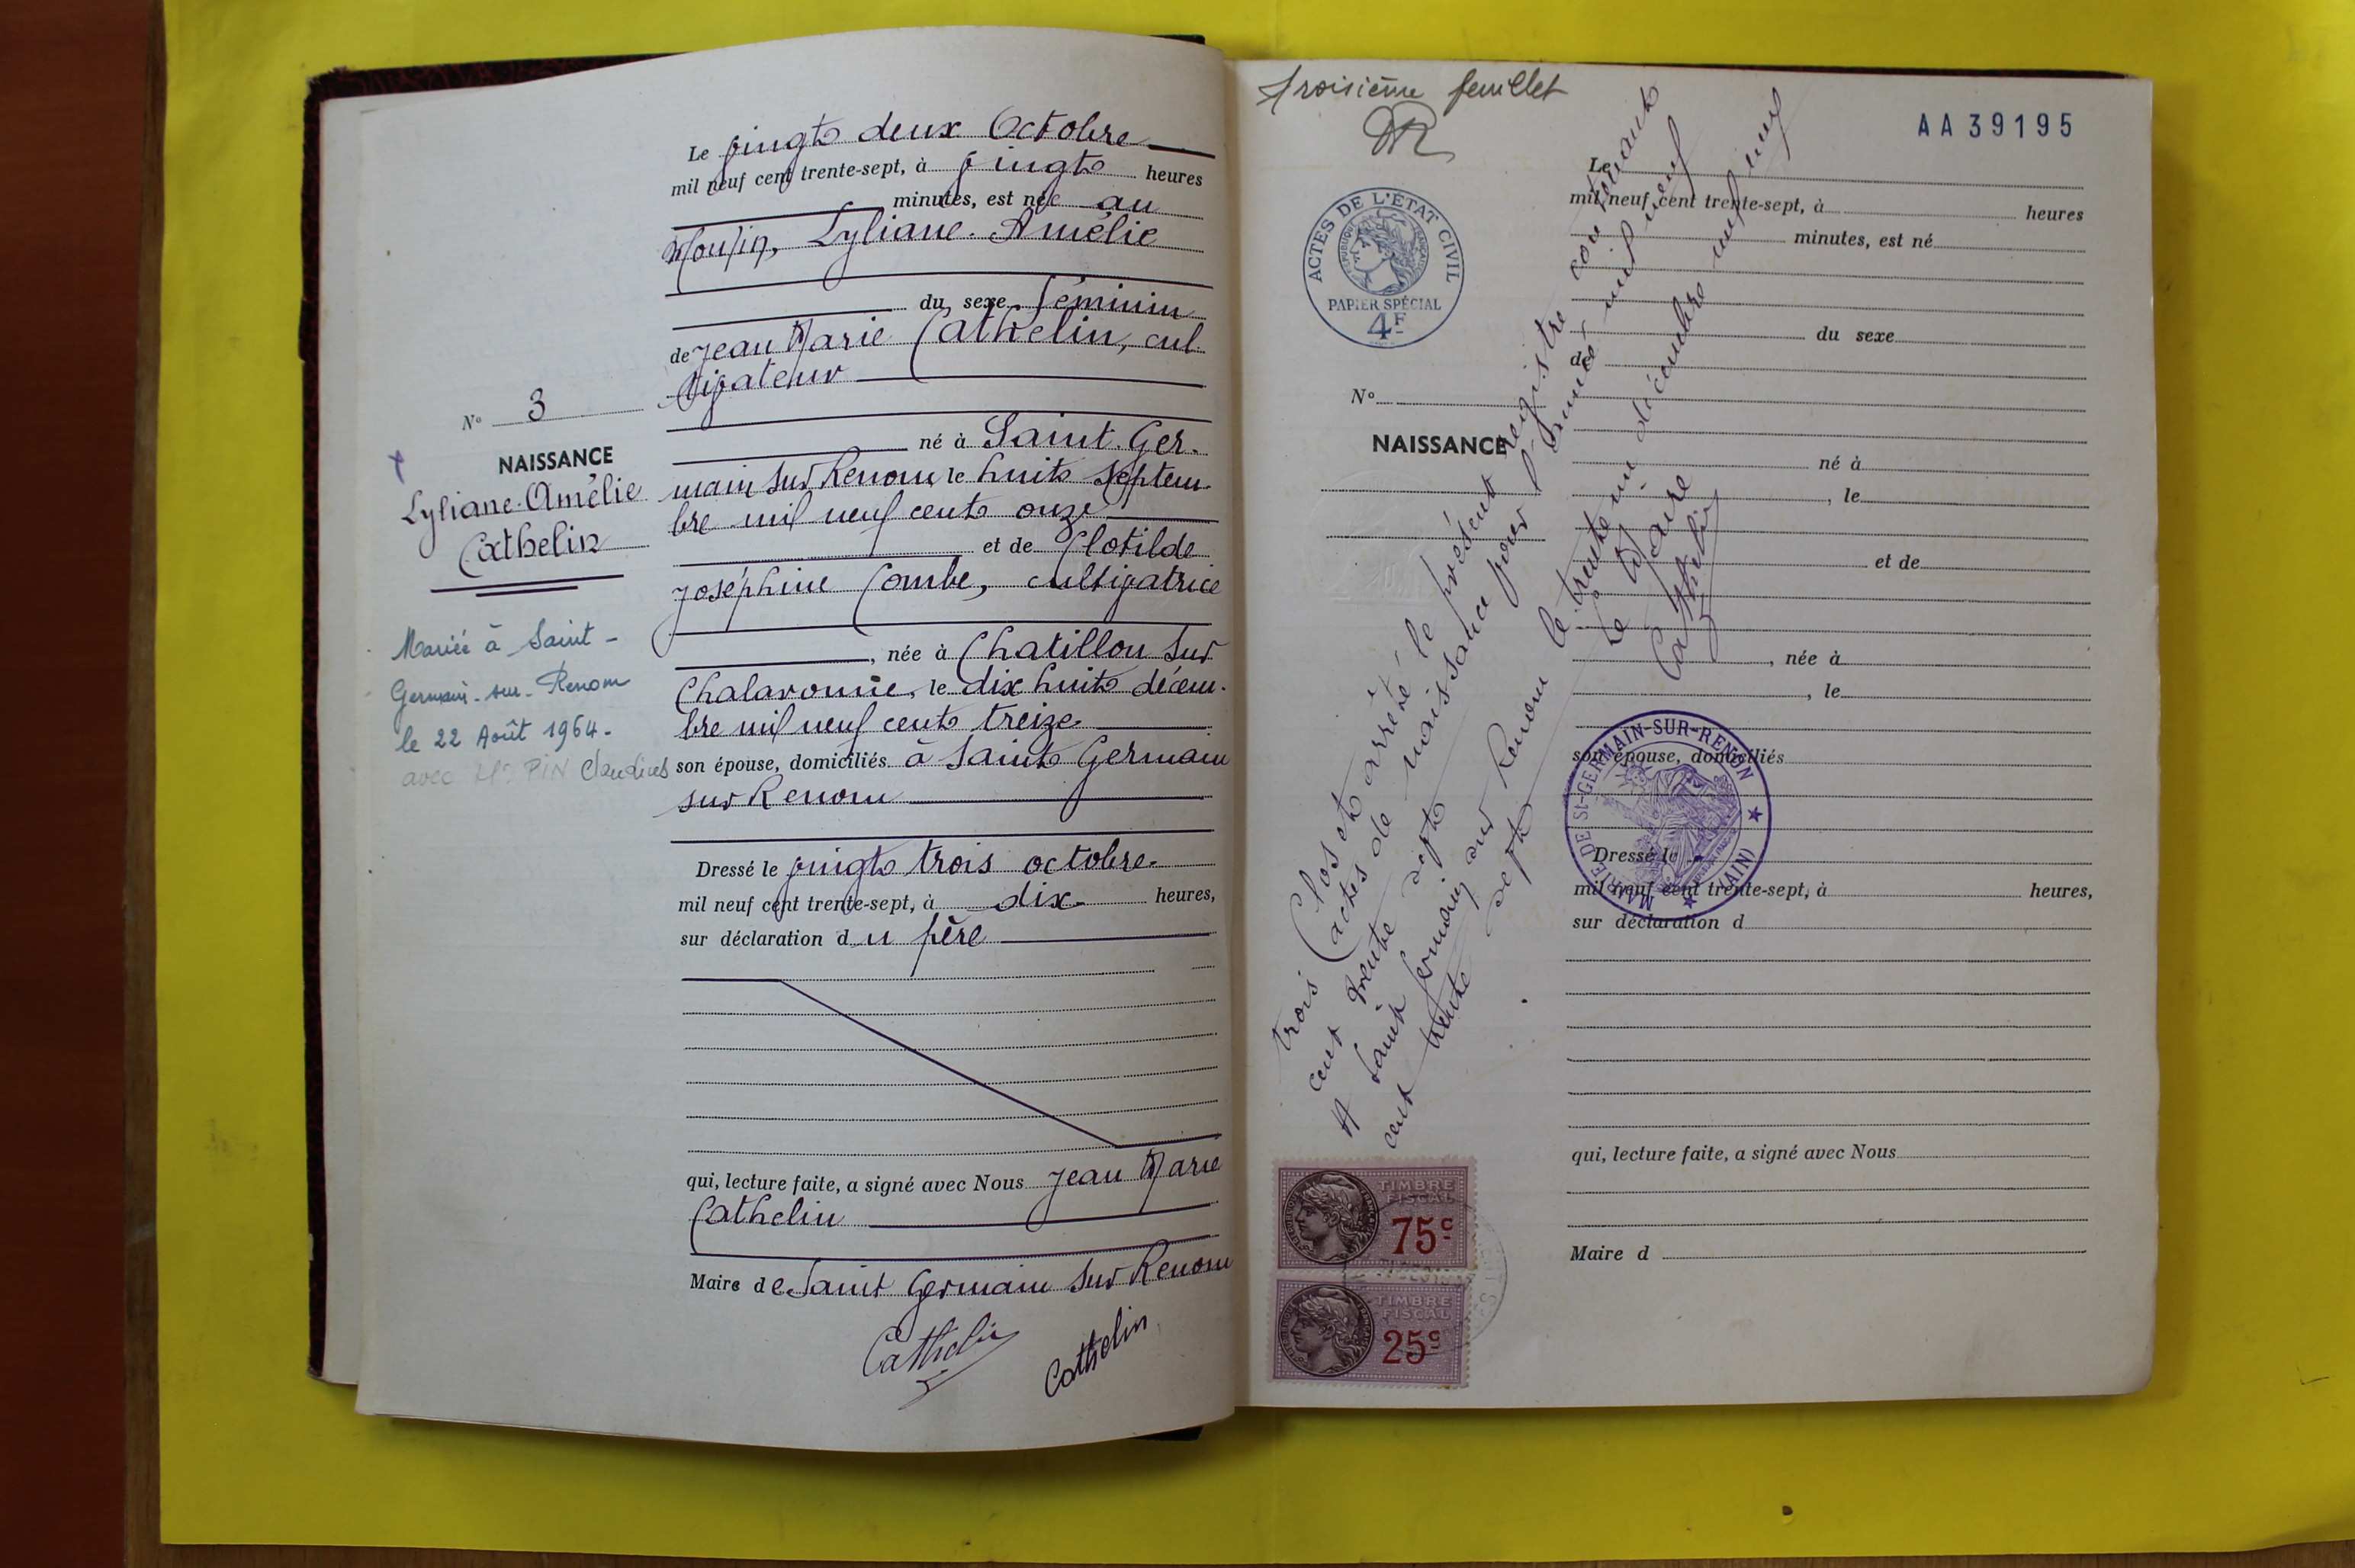 Le vingt deux Octobre
mil neuf cent trente-sept, à vingt heures
minutes, est née au
Moulin, Lyliane-Amélie
du sexe féminin
de Jean Marie Cathelin, cul-
tivateur
né à Saint Ger-
main sur Renom, le huit septem-
bre mil neuf cent onze
et de Clotilde
Joséphine Combe, cultivatrice
, née à Chatillon sur
Chalaronne, le dix huit décem-
bre mil neuf cent treize
son épouse, domiciliés à Saint Germain
sur Renom
Dressé le vingt trois octobre
mil neuf cent trente-sept, à dix heures,
sur déclaration du père
qui, lecture faite, a signé avec Nous Jean Marie
Cathelin
Maire de Saint Germain sur Renom
Cathelin
Cathelin
No 3
NAISSANCE
Lyliane-Amélie
Cathelin
Mariée à Saint-
Germain-sur-Renom
le 22 Août 1964-
avec PIN Claudius
troisième feuillet
AA39195
ACTES DE L'ÉTAT CIVIL
RÉPUBLIQUE FRANÇAISE
PAPIER SPÉCIAL
4F
No
NAISSANCE
Le
mil neuf cent trente-sept, à heures
minutes, est né
du sexe
de
né à
, le
et de
, née à
, le
son épouse, domiciliés
Dressé le
mil neuf cent trente-sept, à heures,
sur déclaration d
qui, lecture faite, a signé avec Nous
Maire d
Clos et arrêté le présent registre contenant
trois actes de naissance pour l'année mil neuf
cent trente sept
A Saint Germain sur Renom le trente un décembre mil neuf
cent trente sept
Le Maire
Cathelin
MAIRIE DE St-GERMAIN-SUR-RENON
(AIN)
TIMBRE
FISCAL
75c
TIMBRE
FISCAL
25c